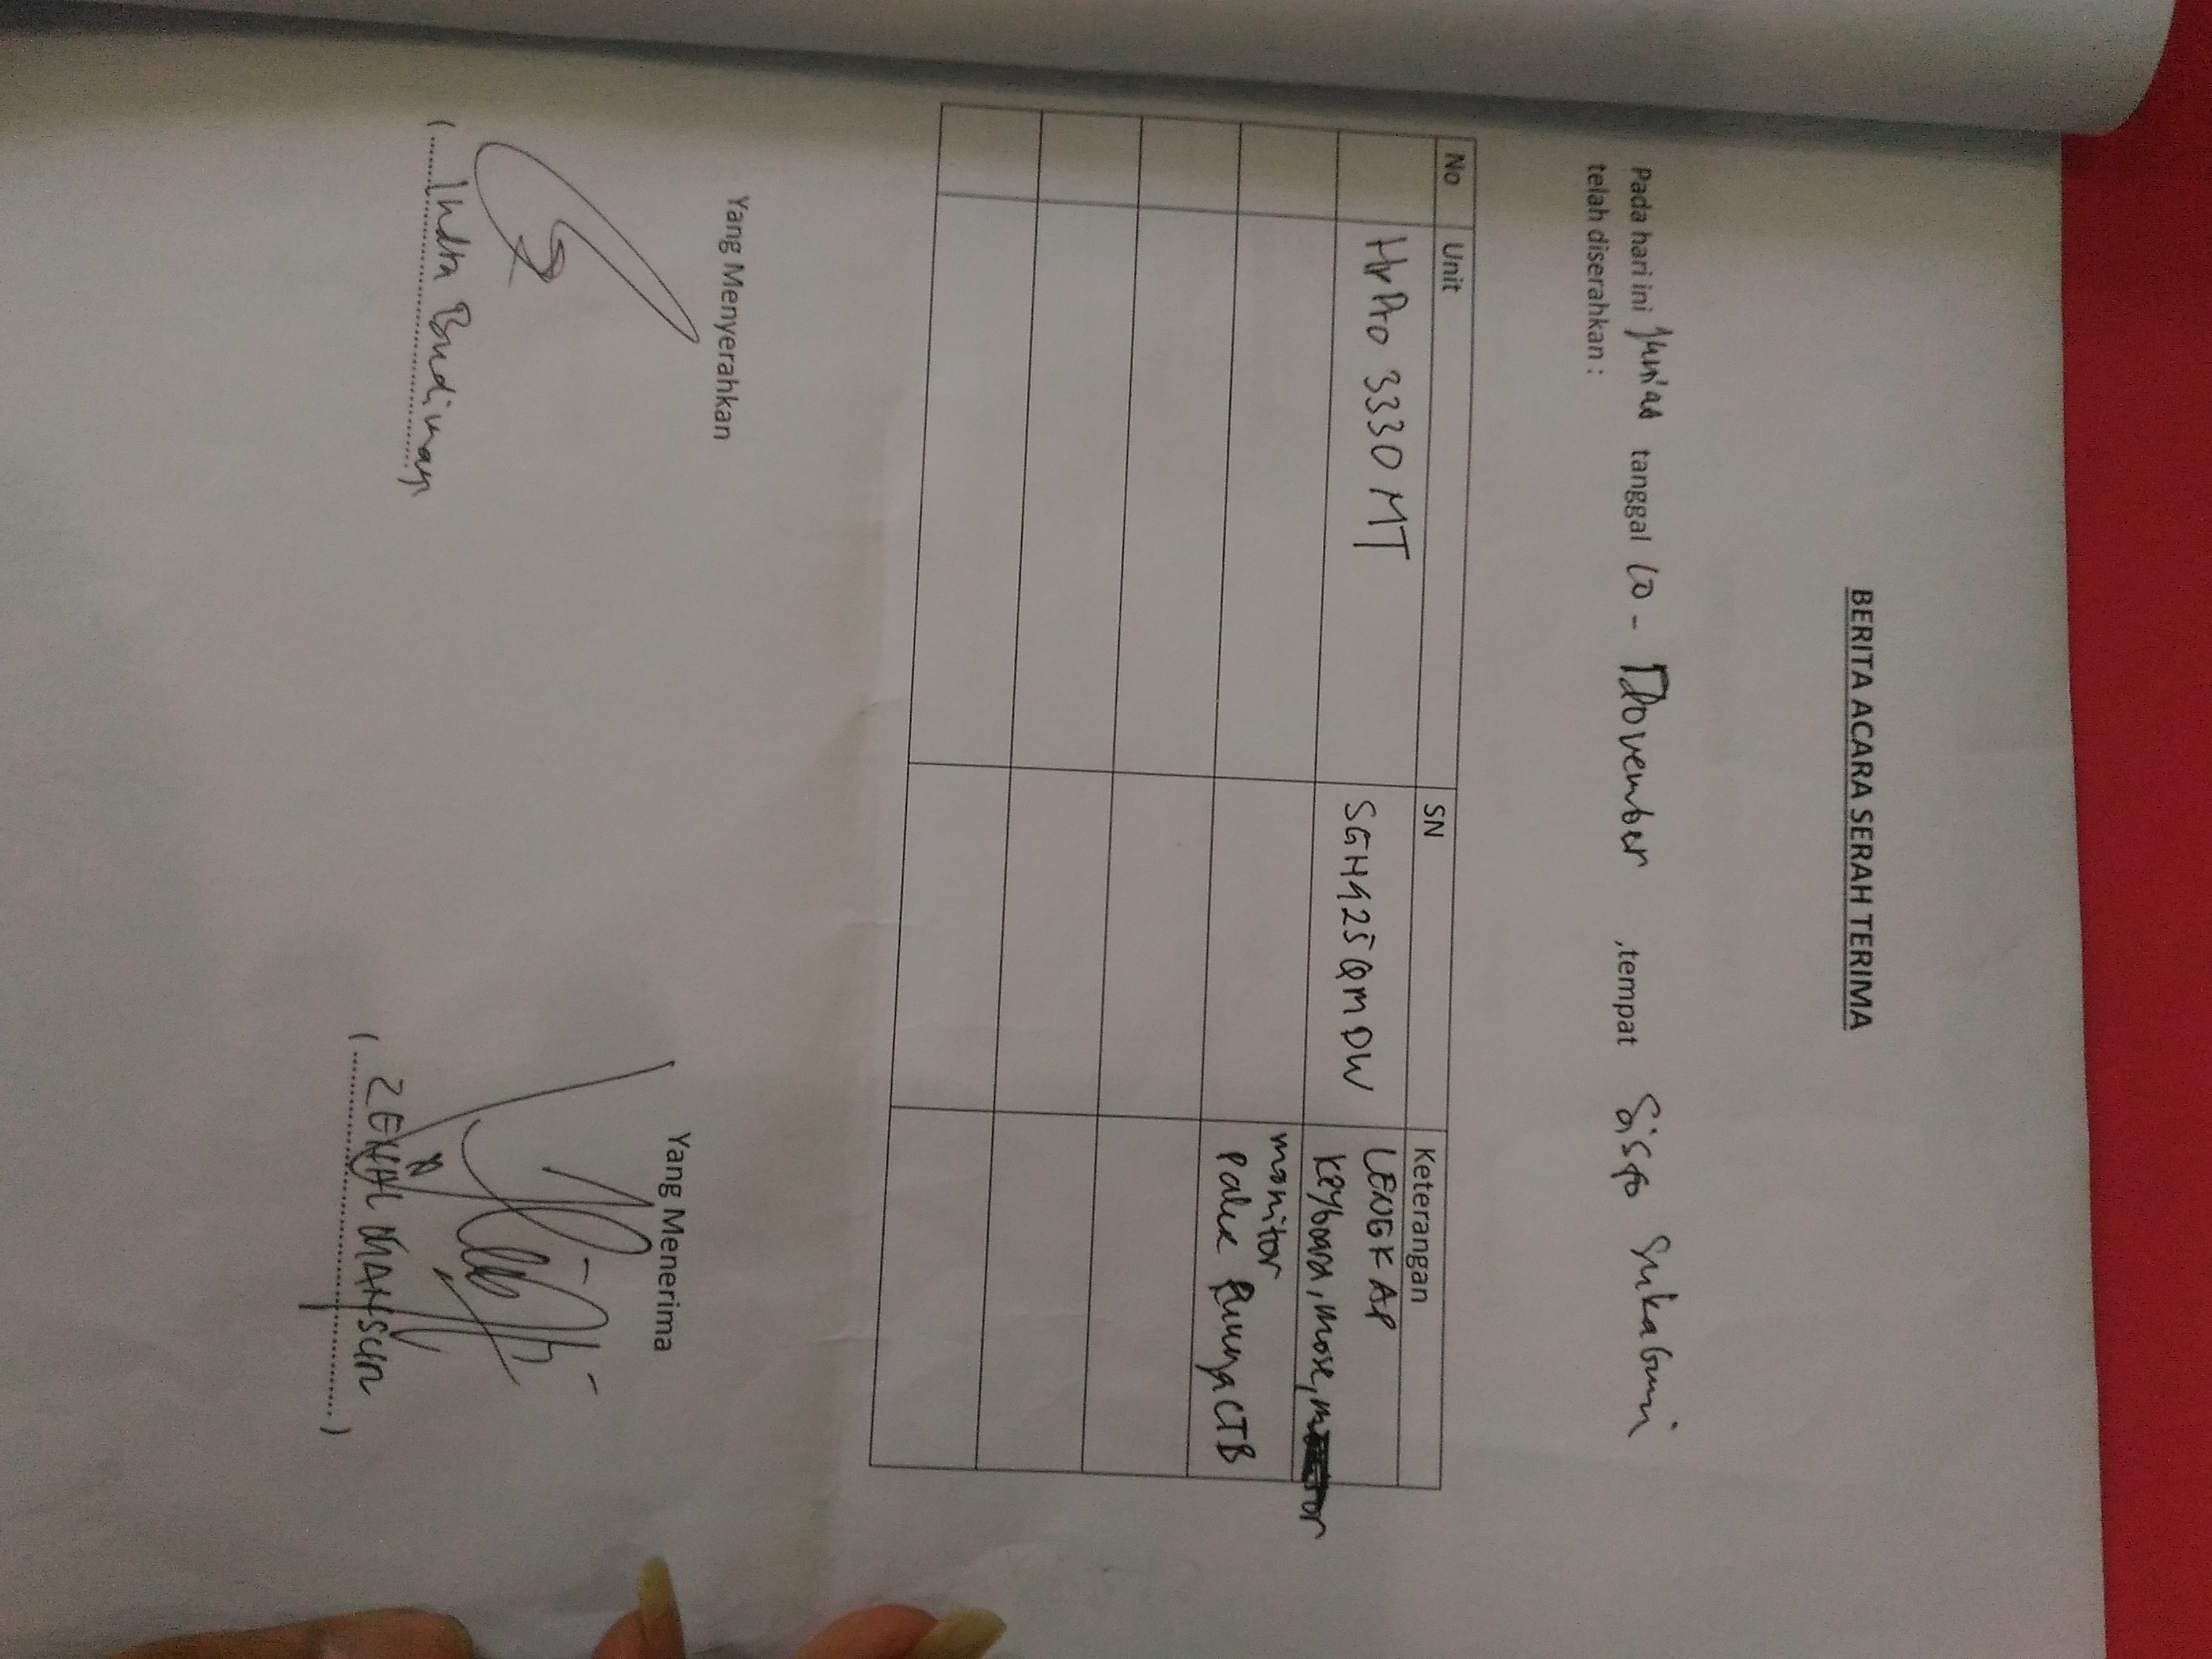 BERITA ACARA SERAH TERIMA
Pada hari ini Jum'at tanggal 10 - November , tempat Sisfo Sukabumi
telah diserahkan :
No Unit SN Keterangan
HP Pro 3330 MT SGH425QMDW LENGKAP
Keyboard, mose,
monitor
Palu CTB
Yang Menyerahkan Yang Menerima
( Indra Budiman
( ZENAL MANSUR )